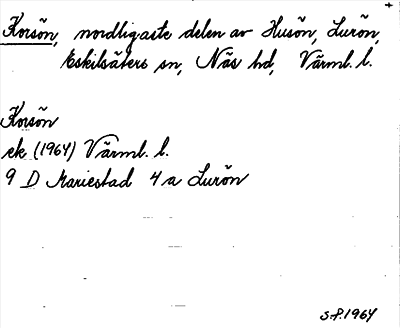 Korsön, nordligaste delen av Husön, Lurön,
Eskilsäters sn, Näs hd, Värml. l.
Korsön
ek (1964) Värml. l.
9 D Mariestad 4 a Lurön
S.P. 1964